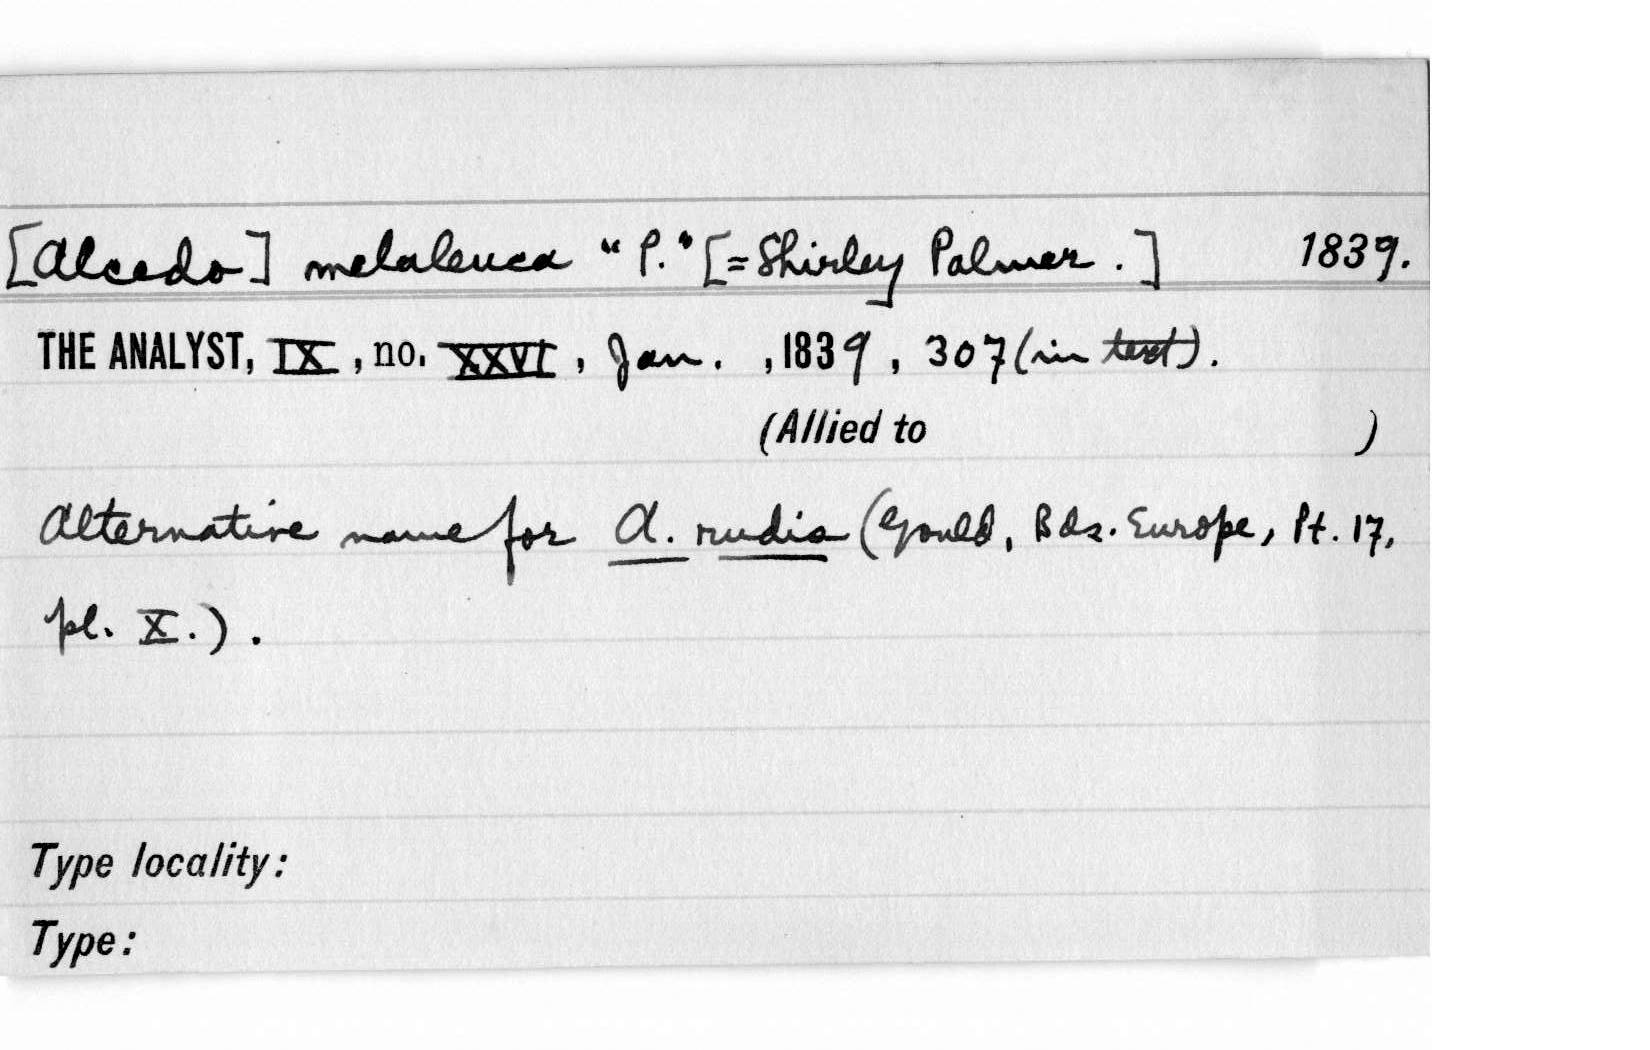 [Alcedo] melaleuca "P." [=Shirley Palmer.] 1839.
THE ANALYST, IX, no. XXVI, Jan. ,1839, 307 (in text).
(Allied to )
Alternative name for A. rudis (Gould, Bds. Europe, Pt. 17,
pl. X.).
Type locality:
Type: